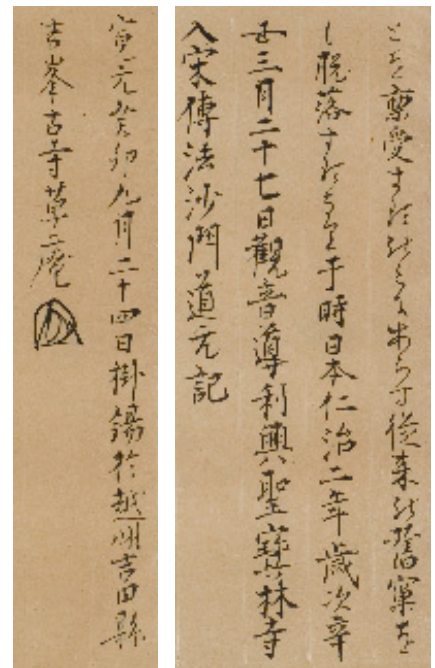 とを稟受するのみにあらす従来の舊窠を
も脱落するなり于時日本仁治二年歳次辛
丑三月二十七日觀音導利興聖寳林寺
入宋傳法沙門道元記
寛元癸卯九月二十四日掛錫於越州吉田縣
吉峯古寺草庵